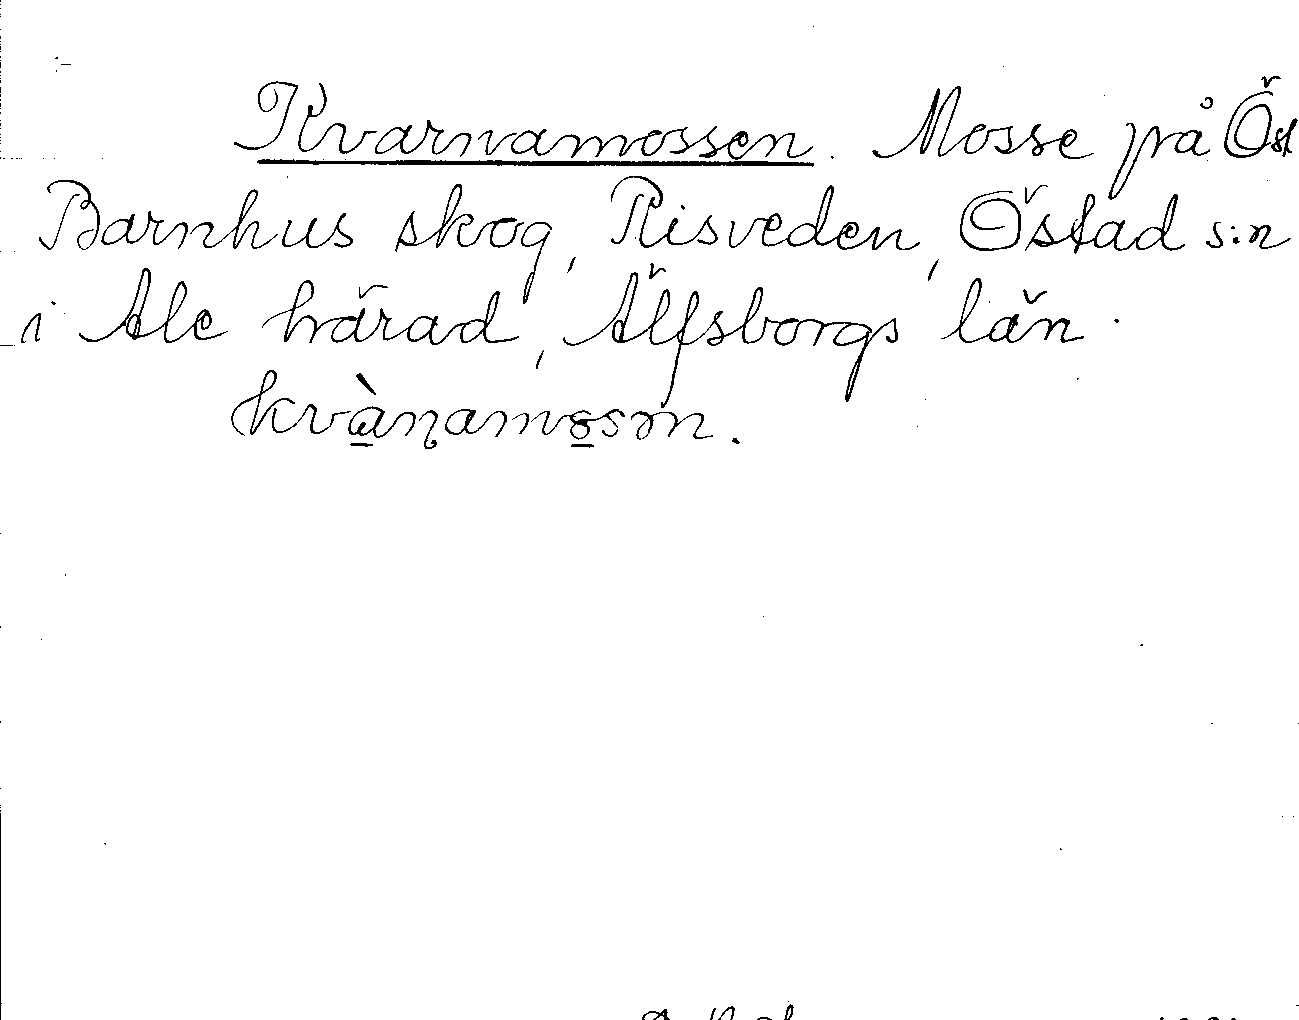 Kvarnamossen. Mosse på Öst
Barnhus skog, Risveden, Östad s:n
i Ale härad, Älfsborgs län.
kvànamosən.